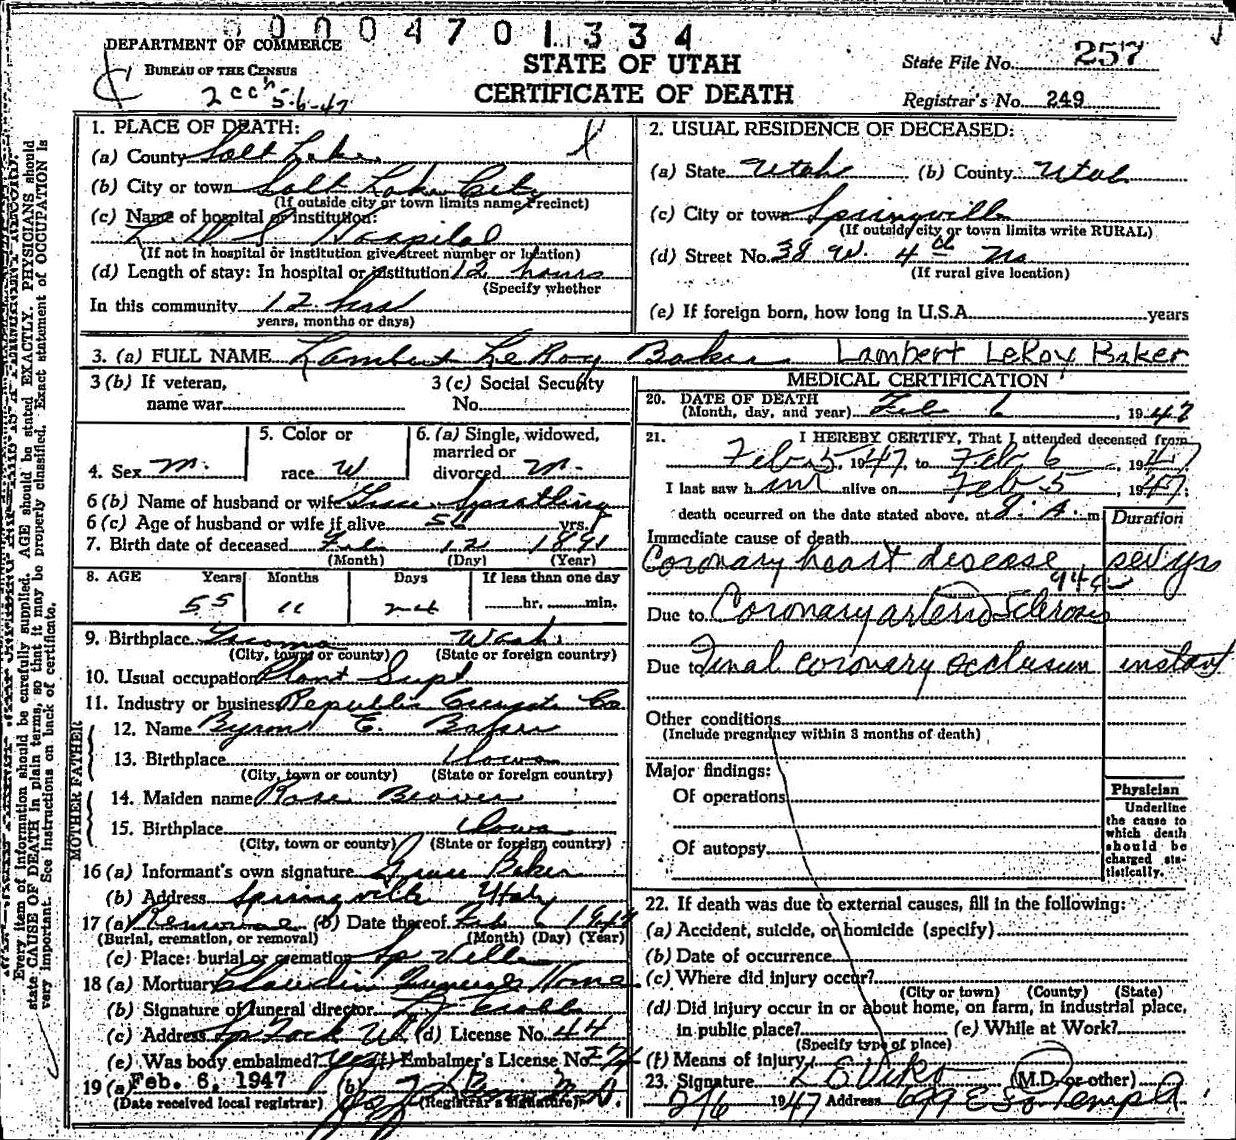 00004701334
DEPARTMENT OF COMMERCE
BUREAU OF THE CENSUS
5-6-47
STATE OF UTAH
CERTIFICATE OF DEATH
State File No. 257
Registrar's No. 249
1. PLACE OF DEATH:
(a) County Salt Lake
(b) City or town Salt Lake City
(If outside city or town limits name Precinct)
(c) Name of hospital or institution:
L.D.S Hospital
(If not in hospital or institution give street number or location)
(d) Length of stay: In hospital or institution 12 hours
(Specify whether
In this community 12 hours
years, months or days)
2. USUAL RESIDENCE OF DECEASED:
(a) State Utah (b) County Utah
(c) City or town Springville
(If outside city or town limits write RURAL)
(d) Street No. 38 W. 4th No
(If rural give location)
(e) If foreign born, how long in U.S.A. years
3. (a) FULL NAME Lambert LeRoy Baker Lambert LeRoy Baker
3 (b) If veteran,
name war
3 (c) Social Security
No.
4. Sex M.
5. Color or
race W
6. (a) Single, widowed,
married or
divorced M.
6 (b) Name of husband or wife Grace Spratling
6 (c) Age of husband or wife if alive yrs.
7. Birth date of deceased Feb 12 1891
(Month) (Day) (Year)
8. AGE Years Months Days If less than one day
55 11 24 hr. min.
9. Birthplace Tacoma Wash.
(City, town or county) (State or foreign country)
10. Usual occupation Plant Supt
11. Industry or business Republic Co.
FATHER
12. Name Byron E. Baker
13. Birthplace Iowa
(City, town or county) (State or foreign country)
MOTHER
14. Maiden name Rose
15. Birthplace Iowa
(City, town or county) (State or foreign country)
16 (a) Informant's own signature Grace Baker
(b) Address Springville Utah
17 (a) Removal (b) Date thereof Feb 6 1947
(Burial, cremation, or removal) (Month) (Day) (Year)
(c) Place: burial or cremation Sp Ville
18 (a) Mortuary Claudin Funeral Home
(b) Signature of funeral director
(c) Address Sp Fork Ut (d) License No. 44
(e) Was body embalmed? yes (f) Embalmer's License No.
19 (a) Feb. 6, 1947 (b)
(Date received local registrar) (Registrar's signature)
MEDICAL CERTIFICATION
20. DATE OF DEATH
(Month, day, and year) Feb 6, 1947
21. I HEREBY CERTIFY, That I attended deceased from
Feb 5, 1947, to Feb 6, 1947
I last saw him alive on Feb 5, 1947;
death occurred on the date stated above, at A. m
Duration
Immediate cause of death
Coronary heart disease sev yrs
Due to Coronary arterio Sclerosis
Due to Final coronary occlusion instant
Other conditions
(Include pregnancy within 3 months of death)
Major findings:
Of operations
Of autopsy
Physician
Underline
the cause to
which death
should be
charged sta-
tistically.
22. If death was due to external causes, fill in the following:
(a) Accident, suicide, or homicide (specify)
(b) Date of occurrence
(c) Where did injury occur?
(City or town) (County) (State)
(d) Did injury occur in or about home, on farm, in industrial place,
in public place? (e) While at Work?
(Specify type of place)
(f) Means of injury
23. Signature L E Viko (M.D. or other)
2/6 1947 Address 699 E So Temple
Every item of information should be carefully supplied. AGE should be stated EXACTLY. PHYSICIANS should
state CAUSE OF DEATH in plain terms, so that it may be properly classified. Exact statement of OCCUPATION is
very important. See instructions on back of certificate.